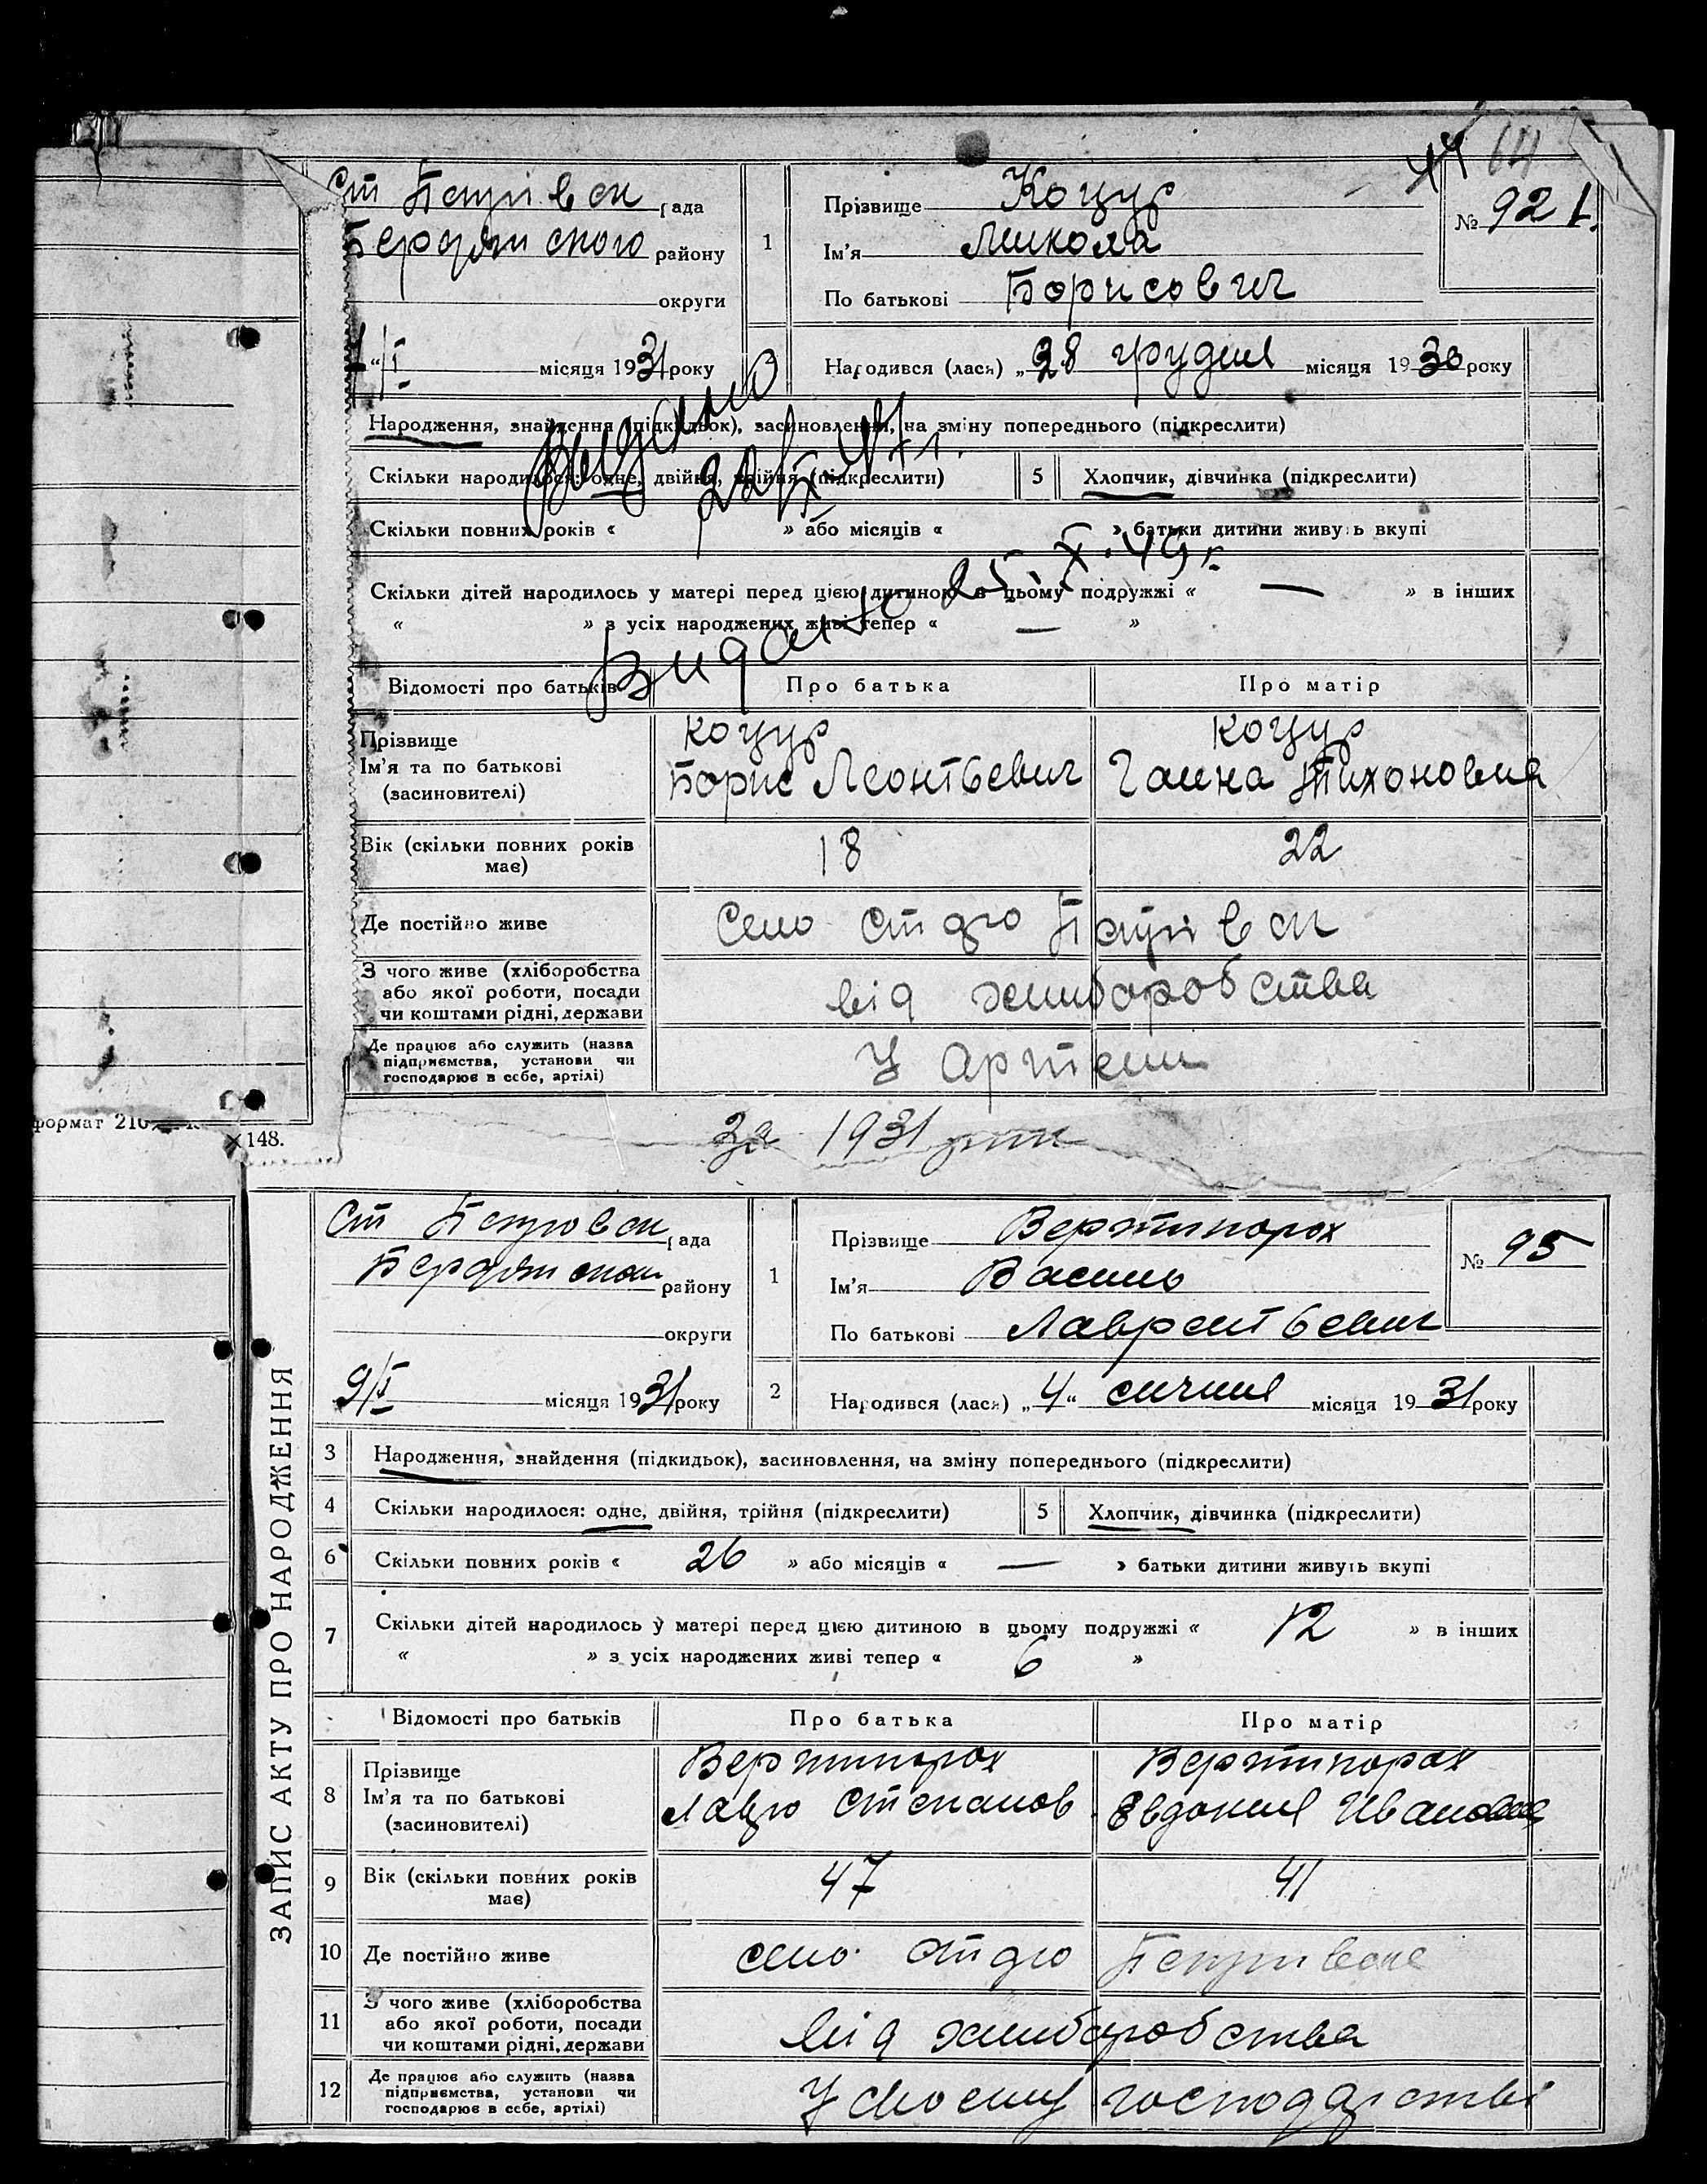 44 64
Ст Петрівск рада
Бердянского району
округи
1/I місяця 1931 року
1
Прізвище Коцур
Ім'я Микола
По батькові Борисович
№ 92 1.
Народився (лася) „28 грудня місяця 1930 року
Народження, знайдення (підкидьок), засиновлення, на зміну попереднього (підкреслити)
Скільки народилося: одне, двійня, трійня (підкреслити) 5 Хлопчик, дівчинка (підкреслити)
Скільки повних років « » або місяців « » батьки дитини живуть вкупі
Скільки дітей народилось у матері перед цією дитиною в цьому подружжі « — » в інших
« » з усіх народжених живі тепер « — »
Видано 25 X. 49 г.
Відомості про батьків Про батька Про матір
Прізвище Коцур Коцур
Ім'я та по батькові Борис Леонтьевич Ганна Тихоновна
(засиновителі)
Вік (скільки повних років має) 18 22
Де постійно живе Село Ст дго Петрівск
З чого живе (хліборобства
або якої роботи, посади
чи коштами рідні, держави від хлиборобства
Де працює або служить (назва
підприємства, установи чи
господарює в себе, артілі) У Артели
формат 210
×148.
За 1931 рік
ЗАПИС АКТУ ПРО НАРОДЖЕННЯ
Ст Петровск рада
Бердянском району
округи
9/I місяця 1931 року
1
Прізвище Вертипорох
Ім'я Василь
По батькові Лаврентьевич
№ 95
2 Народився (лася) „4“ сичня місяця 1931 року
3 Народження, знайдення (підкидьок), засиновлення, на зміну попереднього (підкреслити)
4 Скільки народилося: одне, двійня, трійня (підкреслити) 5 Хлопчик, дівчинка (підкреслити)
6 Скільки повних років « 26 » або місяців « — » батьки дитини живуть вкупі
7 Скільки дітей народилось у матері перед цією дитиною в цьому подружжі « 12 » в інших
« » з усіх народжених живі тепер « 6 »
Відомості про батьків Про батька Про матір
8 Прізвище Вертипорох Вертипорох
Ім'я та по батькові Лавро Степанов Евдокия Ивановна
(засиновителі)
9 Вік (скільки повних років має) 47 41
10 Де постійно живе село Ст дго Петривске
11 З чого живе (хліборобства
або якої роботи, посади
чи коштами рідні, держави від хлиборобства
12 Де працює або служить (назва
підприємства, установи чи
господарює в себе, артілі) У своему господарстві